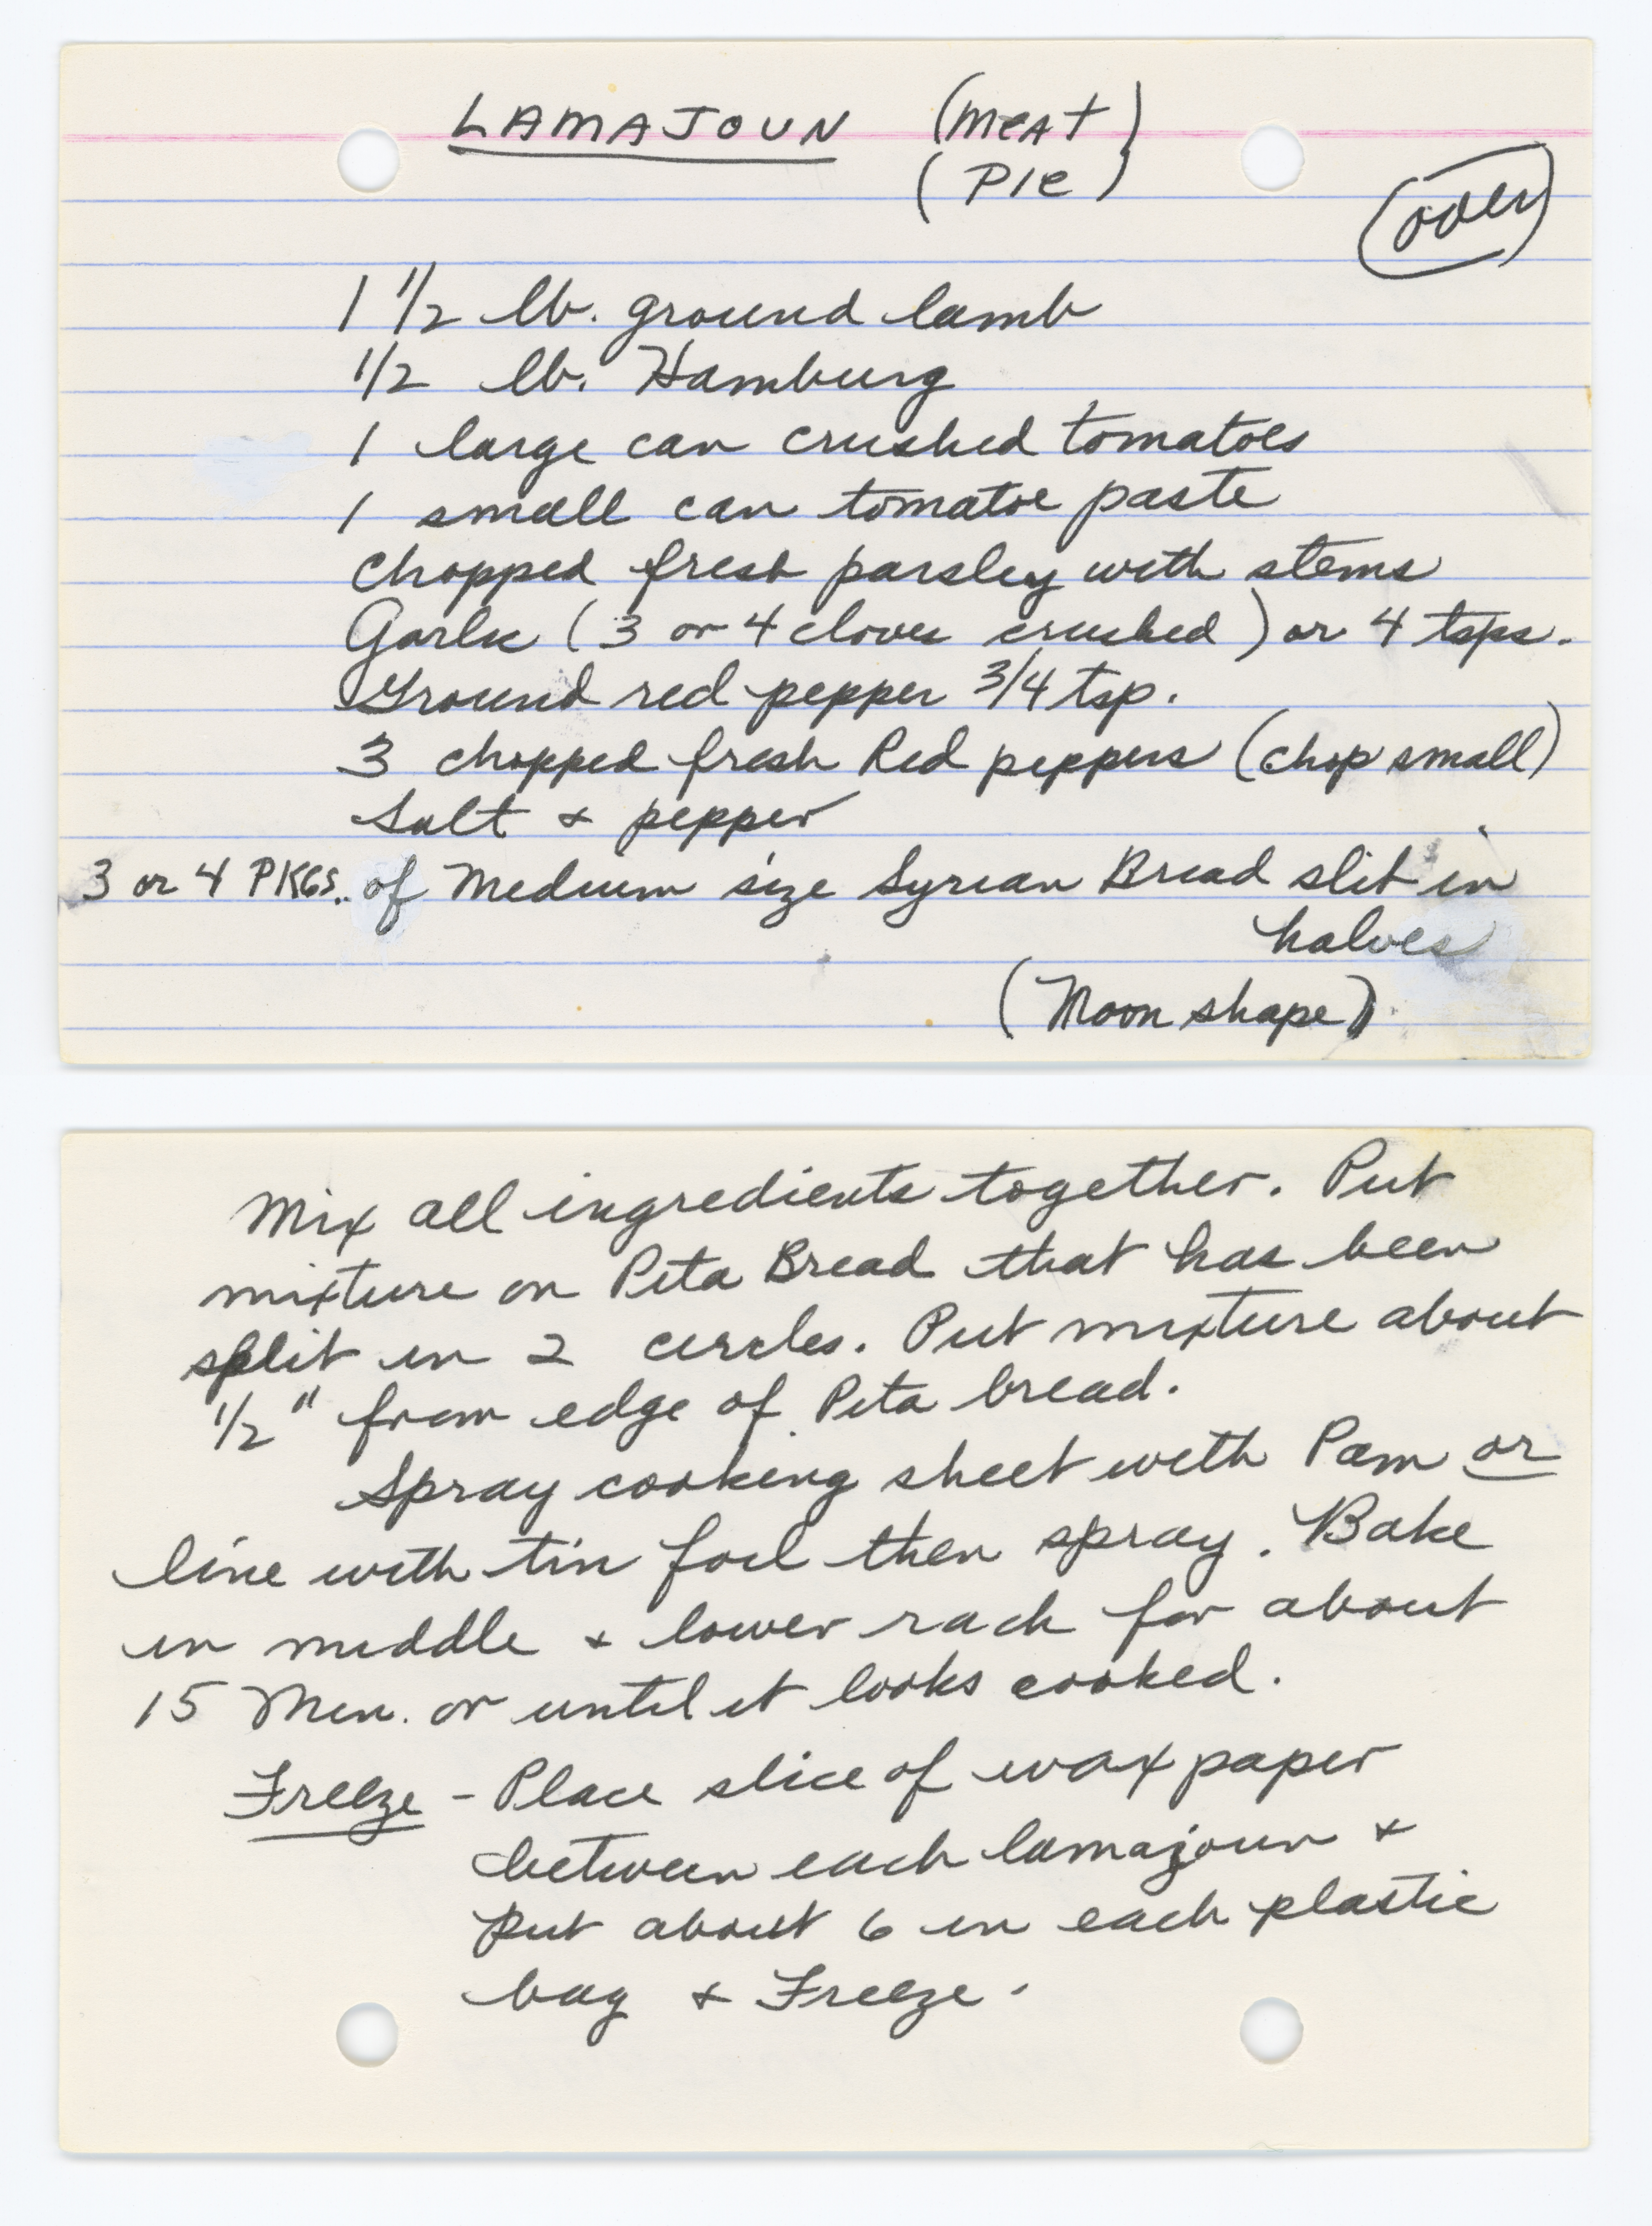 LAMAJOUN (MeAT)
(PIe)
over
1 1/2 lb. ground lamb
1/2 lb. Hamburg
1 large can crushed tomatoes
1 small can tomatoe paste
chopped fresh parsley with stems
Garlic (3 or 4 cloves crushed) or 4 tsps.
Ground red pepper 3/4 tsp.
3 chopped fresh Red peppers (chop small)
Salt & pepper
3 or 4 PKGS. of Medium size Syrian Bread slit in
halves
(Moon shape)
Mix all ingredients together. Put
mixture on Pita Bread that has been
split in 2 circles. Put mixture about
1/2" from edge of Pita bread.
Spray cooking sheet with Pam or
line with tin foil then spray. Bake
in middle & lower rack for about
15 Min. or until it looks cooked.
Freeze - Place slice of wax paper
between each lamajoun &
put about 6 in each plastic
bag & Freeze.